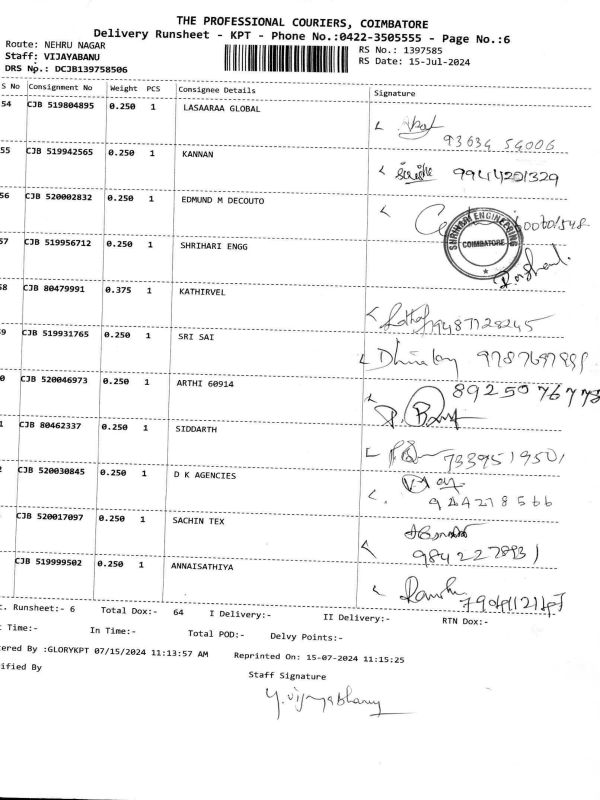 THE PROFESSIONAL COURIERS, COIMBATORE
Delivery Runsheet - KPT - Phone No.:0422-3505555 - Page No.:6
Route: NEHRU NAGAR
RS No.: 1397585
Staff: VIJAYABANU
RS Date: 15-Jul-2024
DRS No.: DCJB139758506
S No Consignment No Weight PCS Consignee Details Signature
54 CJB 519804895 0.250 1 LASAARAA GLOBAL
93634 59006
55 CJB 519942565 0.250 1 KANNAN
99444201329
56 CJB 520002832 0.250 1 EDMUND M DECOUTO
SHRIHARI ENGINEERING
COIMBATORE
57 CJB 519956712 0.250 1 SHRIHARI ENGG
58 CJB 80479991 0.375 1 KATHIRVEL
9487128245
59 CJB 519931765 0.250 1 SRI SAI
0 CJB 520046973 0.250 1 ARTHI 60914
89250 76773
1 CJB 80462337 0.250 1 SIDDARTH
7339519501
2 CJB 520030845 0.250 1 D K AGENCIES
Vijay
944278566
CJB 520017097 0.250 1 SACHIN TEX
CJB 519999502 0.250 1 ANNAISATHIYA
. Runsheet:- 6 Total Dox:- 64 I Delivery:- II Delivery:- RTN Dox:-
t Time:- In Time:- Total POD:- Delvy Points:-
ered By :GLORYKPT 07/15/2024 11:13:57 AM Reprinted On: 15-07-2024 11:15:25
ified By
Staff Signature
Y.vijayabhanu